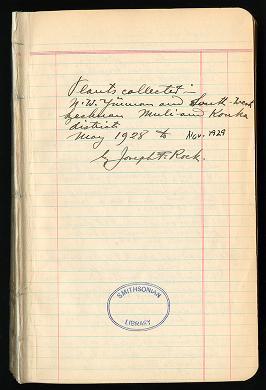 Plants collected in
N.W. Yünnan and South-West
Szechuan Muli and Konka
districts
May 1928 to Nov. 1929
by Joseph F. Rock.
SMITHSONIAN
LIBRARY